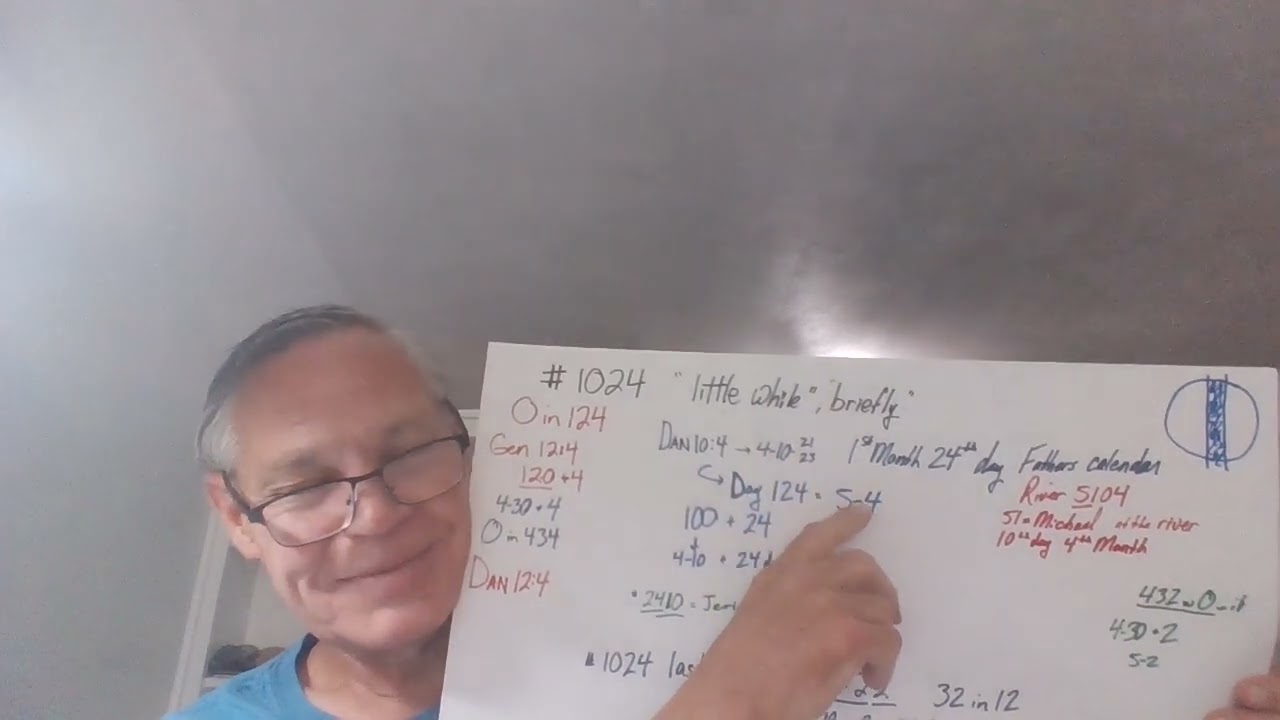 #1024 "little while", "briefly"
0 in 124
Gen 12:4
120+4
4-30+4
0 in 434
DAN 12:4
DAN 10:4 → 4-10- 21 23
1st Month 24th day Fathers calendar
Day 124 = 5-4
100 + 24
4-10 + 24
*2410 =
#1024
32 in 12
River 5104
51 = Michael at the river
10th day 4th Month
432 w 0 in it
4-30+2
5-2